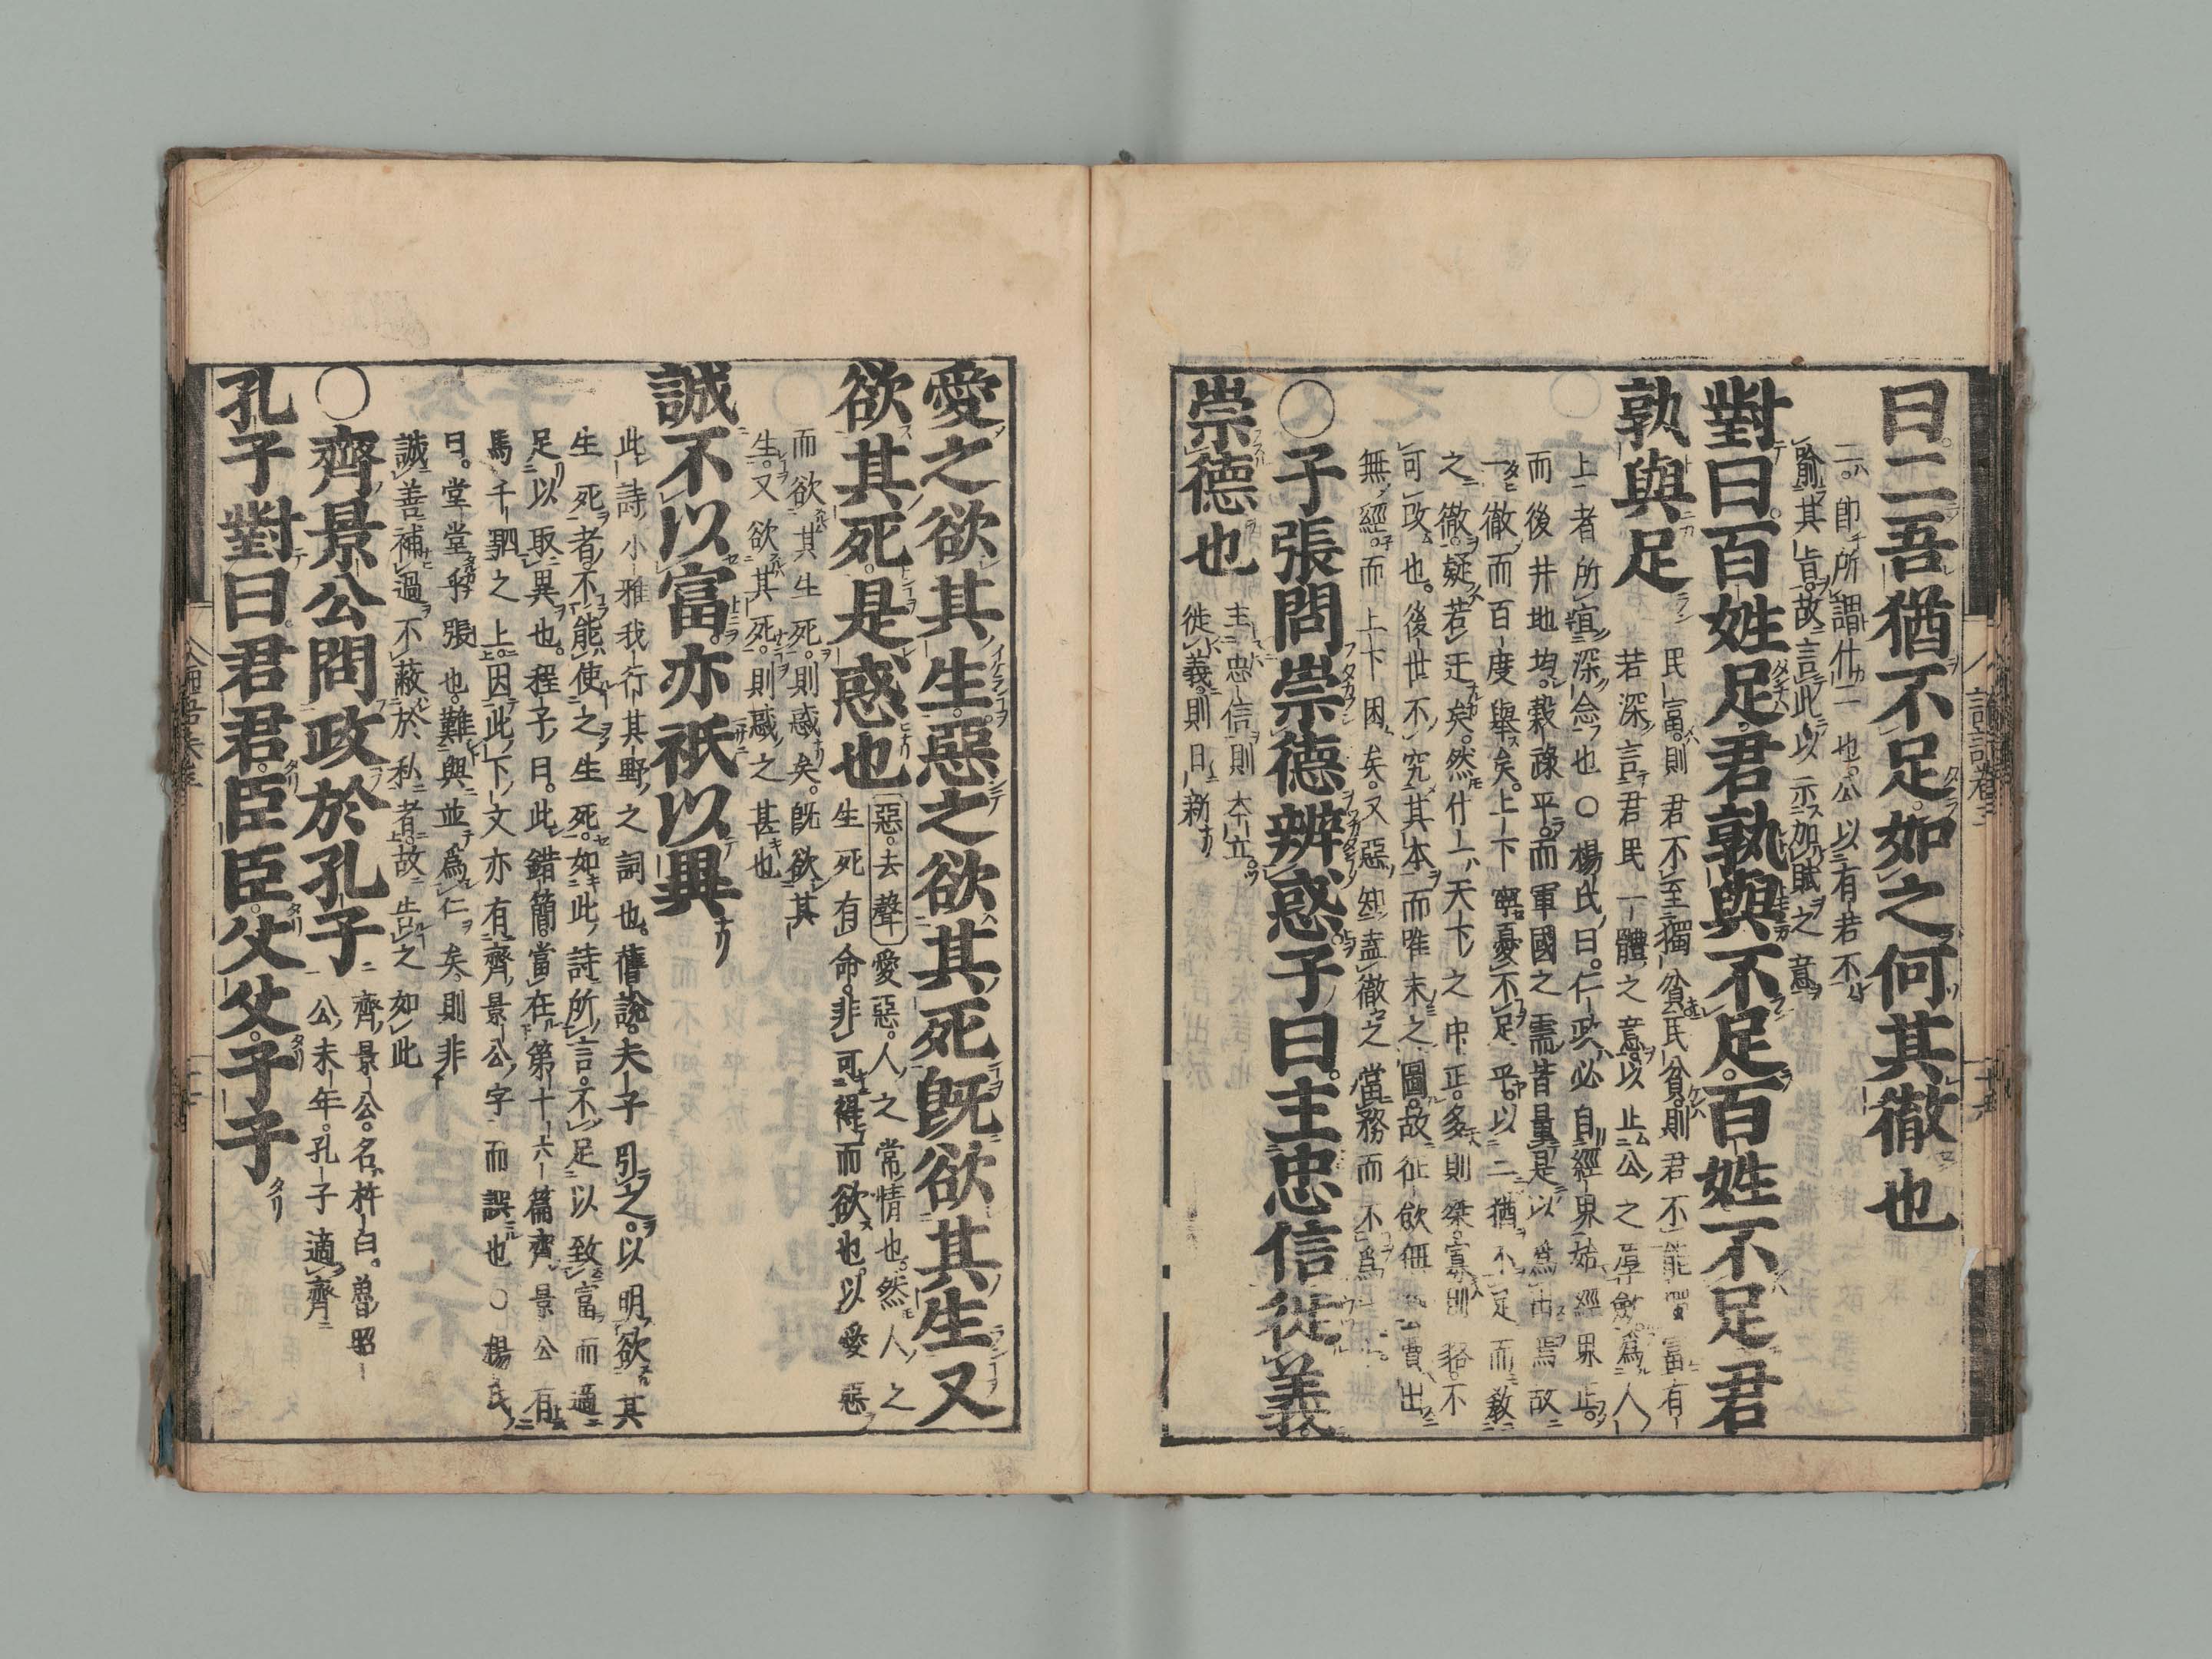 曰二吾猶不足如之何其徹也
二即所謂什二也公以有若不
喻其旨故言此以示加賦之意
對曰百姓足君孰與不足百姓不足君
孰與足
民富則君不至獨貧民貧則君不能獨富有
若深言君民一體之意以止公之厚斂爲人
上者所宜深念也〇楊氏曰仁政必自經界始經界正
而後井地均穀祿平而軍國之需皆量是以爲出焉故
一徹而百度舉矣上下寧憂不足乎以二猶不足而教
之徹疑若迂矣然什一天下之中正多則桀寡則貉不
可改也後世不究其本而唯末之圖故征斂無
無經而上下困矣又惡知盍徹之當務而不爲
〇子張問崇德辨惑子曰主忠信徙義
崇德也
主忠信則本立
徙義則日新
愛之欲其生惡之欲其死既欲其生又
欲其死是惑也
惡去聲愛惡人之常情也然人之
生死有命非可得而欲也以愛惡
而欲其生死則惑矣既欲其
生又欲其死則惑之甚也
誠不以富亦祇以異
此詩小雅我行其野之詞也舊說夫子引之以明欲其
生死者不能使之生死如此詩所言不足以致富而適
足以取異也程子曰此錯簡當在第十六篇齊景公有
馬千駟之上因此下文亦有齊景公字而誤也〇楊氏
曰堂堂乎張也難與並爲仁矣則非
誠善補過不蔽於私者故告之如此
〇齊景公問政於孔子
齊景公名杵臼魯昭
公末年孔子適齊
孔子對曰君君臣臣父父子子